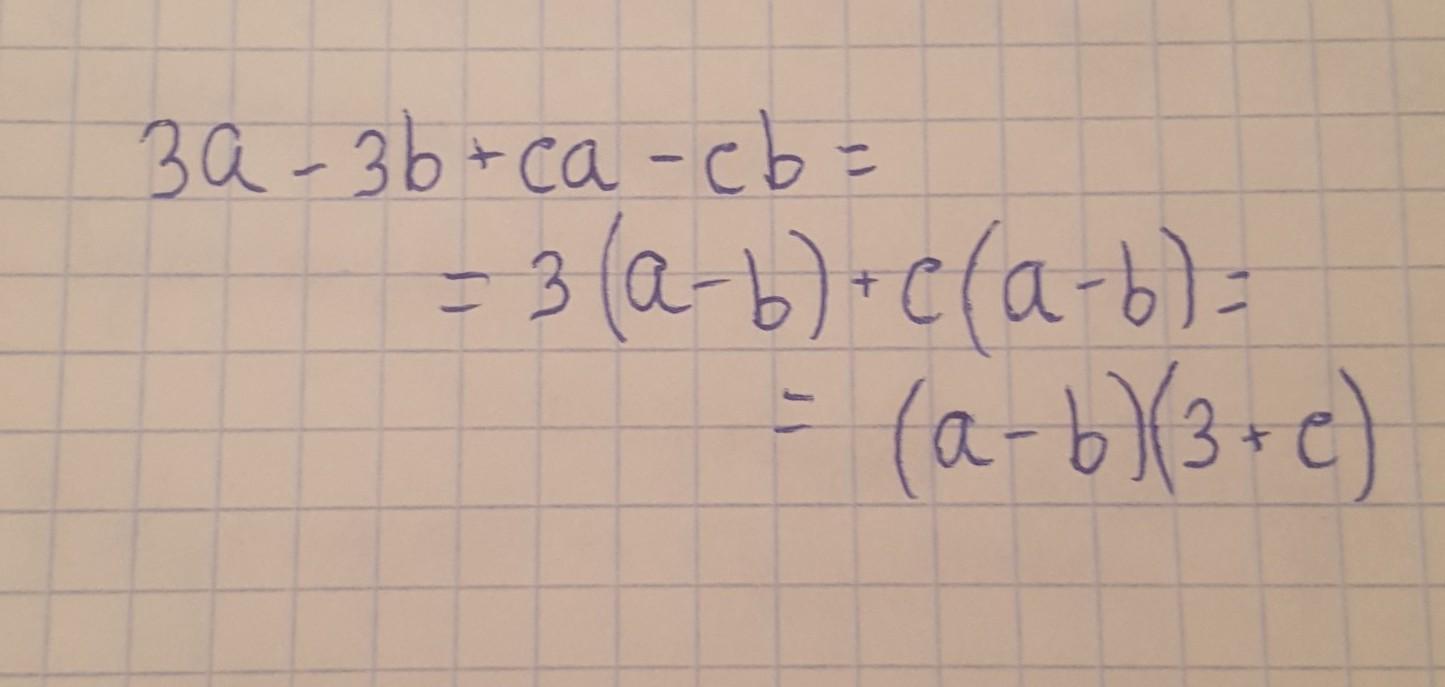 3a - 3b + ca - cb =
= 3(a - b) + c(a - b) =
= (a - b)(3 + c)